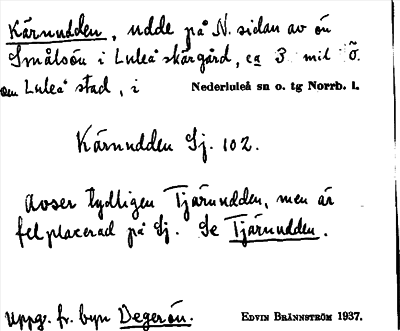 Kärnudden, udde på N. sidan av ön
Småsön i Luleå skärgård, ca 3 mil Ö.
om Luleå stad, i Nederluleå sn o. tg Norrb. l.
Kärnudden Sj. 102.
Avser tydligen Tjärundden, men är
felplacerad på Sj. Se Tjärundden.
Uppg. fr. byn Degerön. EDVIN BRÄNNSTRÖM 1937.